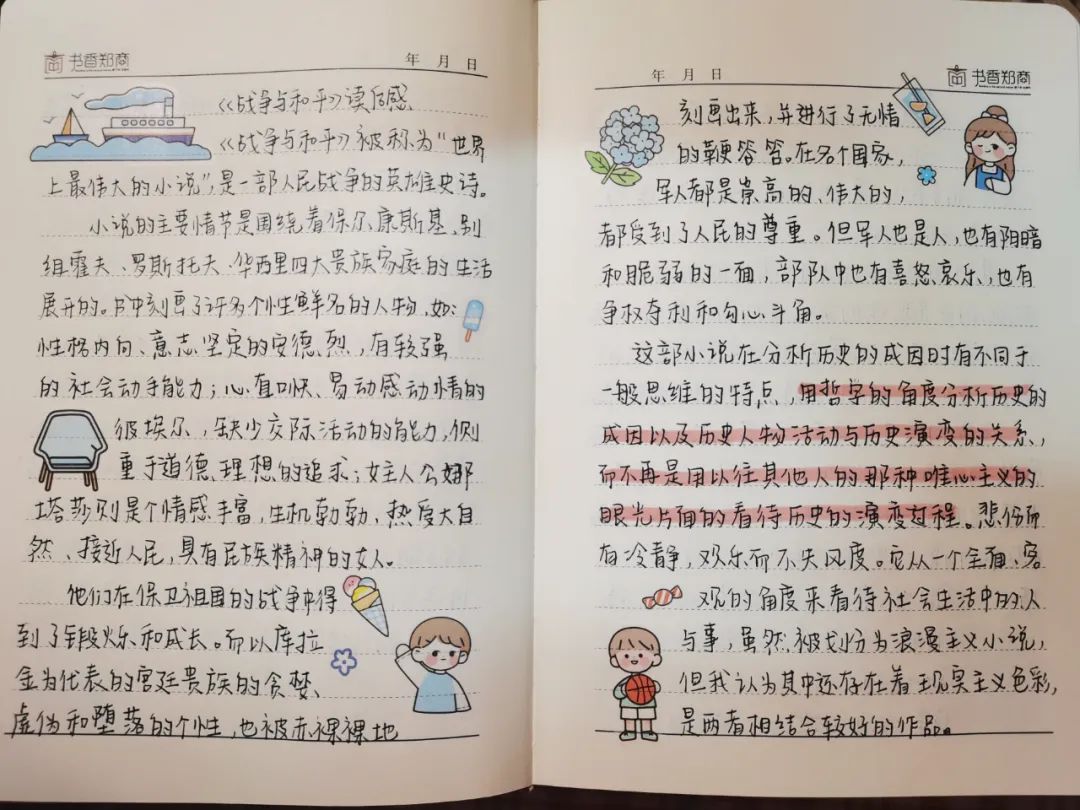 书香郑商
年 月 日
《战争与和平》读后感
《战争与和平》被称为"世界
上最伟大的小说",是一部人民战争的英雄史诗。
小说的主要情节是围绕着保尔康斯基、别
组霍夫、罗斯托夫、华西里四大贵族家庭的生活
展开的。书中刻画了许多个性鲜名的人物,如:
性格内向、意志坚定的安德烈,有较强
的社会动手能力;心直口快、易动感动情的
彼埃尔,缺少交际活动的能力,侧
重于道德、理想的追求;女主人公娜
塔莎则是个情感丰富,生机勃勃、热爱大自
然、接近人民,具有民族精神的女人。
他们在保卫祖国的战争中得
到了锻炼和成长。而以库拉
金为代表的宫廷贵族的贪婪、
虚伪和堕落的个性,也被赤裸裸地
年 月 日
书香郑商
刻画出来,并进行了无情
的鞭笞。在各个国家,
军人都是崇高的、伟大的,
都受到了人民的尊重。但军人也是人,也有阴暗
和脆弱的一面,部队中也有喜怒哀乐,也有
争权夺利和勾心斗角。
这部小说在分析历史的成因时有不同于
一般思维的特点,用哲学的角度分析历史的
成因以及历史人物活动与历史演变的关系,
而不再是用以往其他人的那种唯心主义的
眼光片面的看待历史的演变过程。悲伤而
有冷静,欢乐而不失风度。它从一个全面、客
观的角度来看待社会生活中的人
与事,虽然被划分为浪漫主义小说,
但我认为其中还存在着现实主义色彩,
是两者相结合较好的作品。